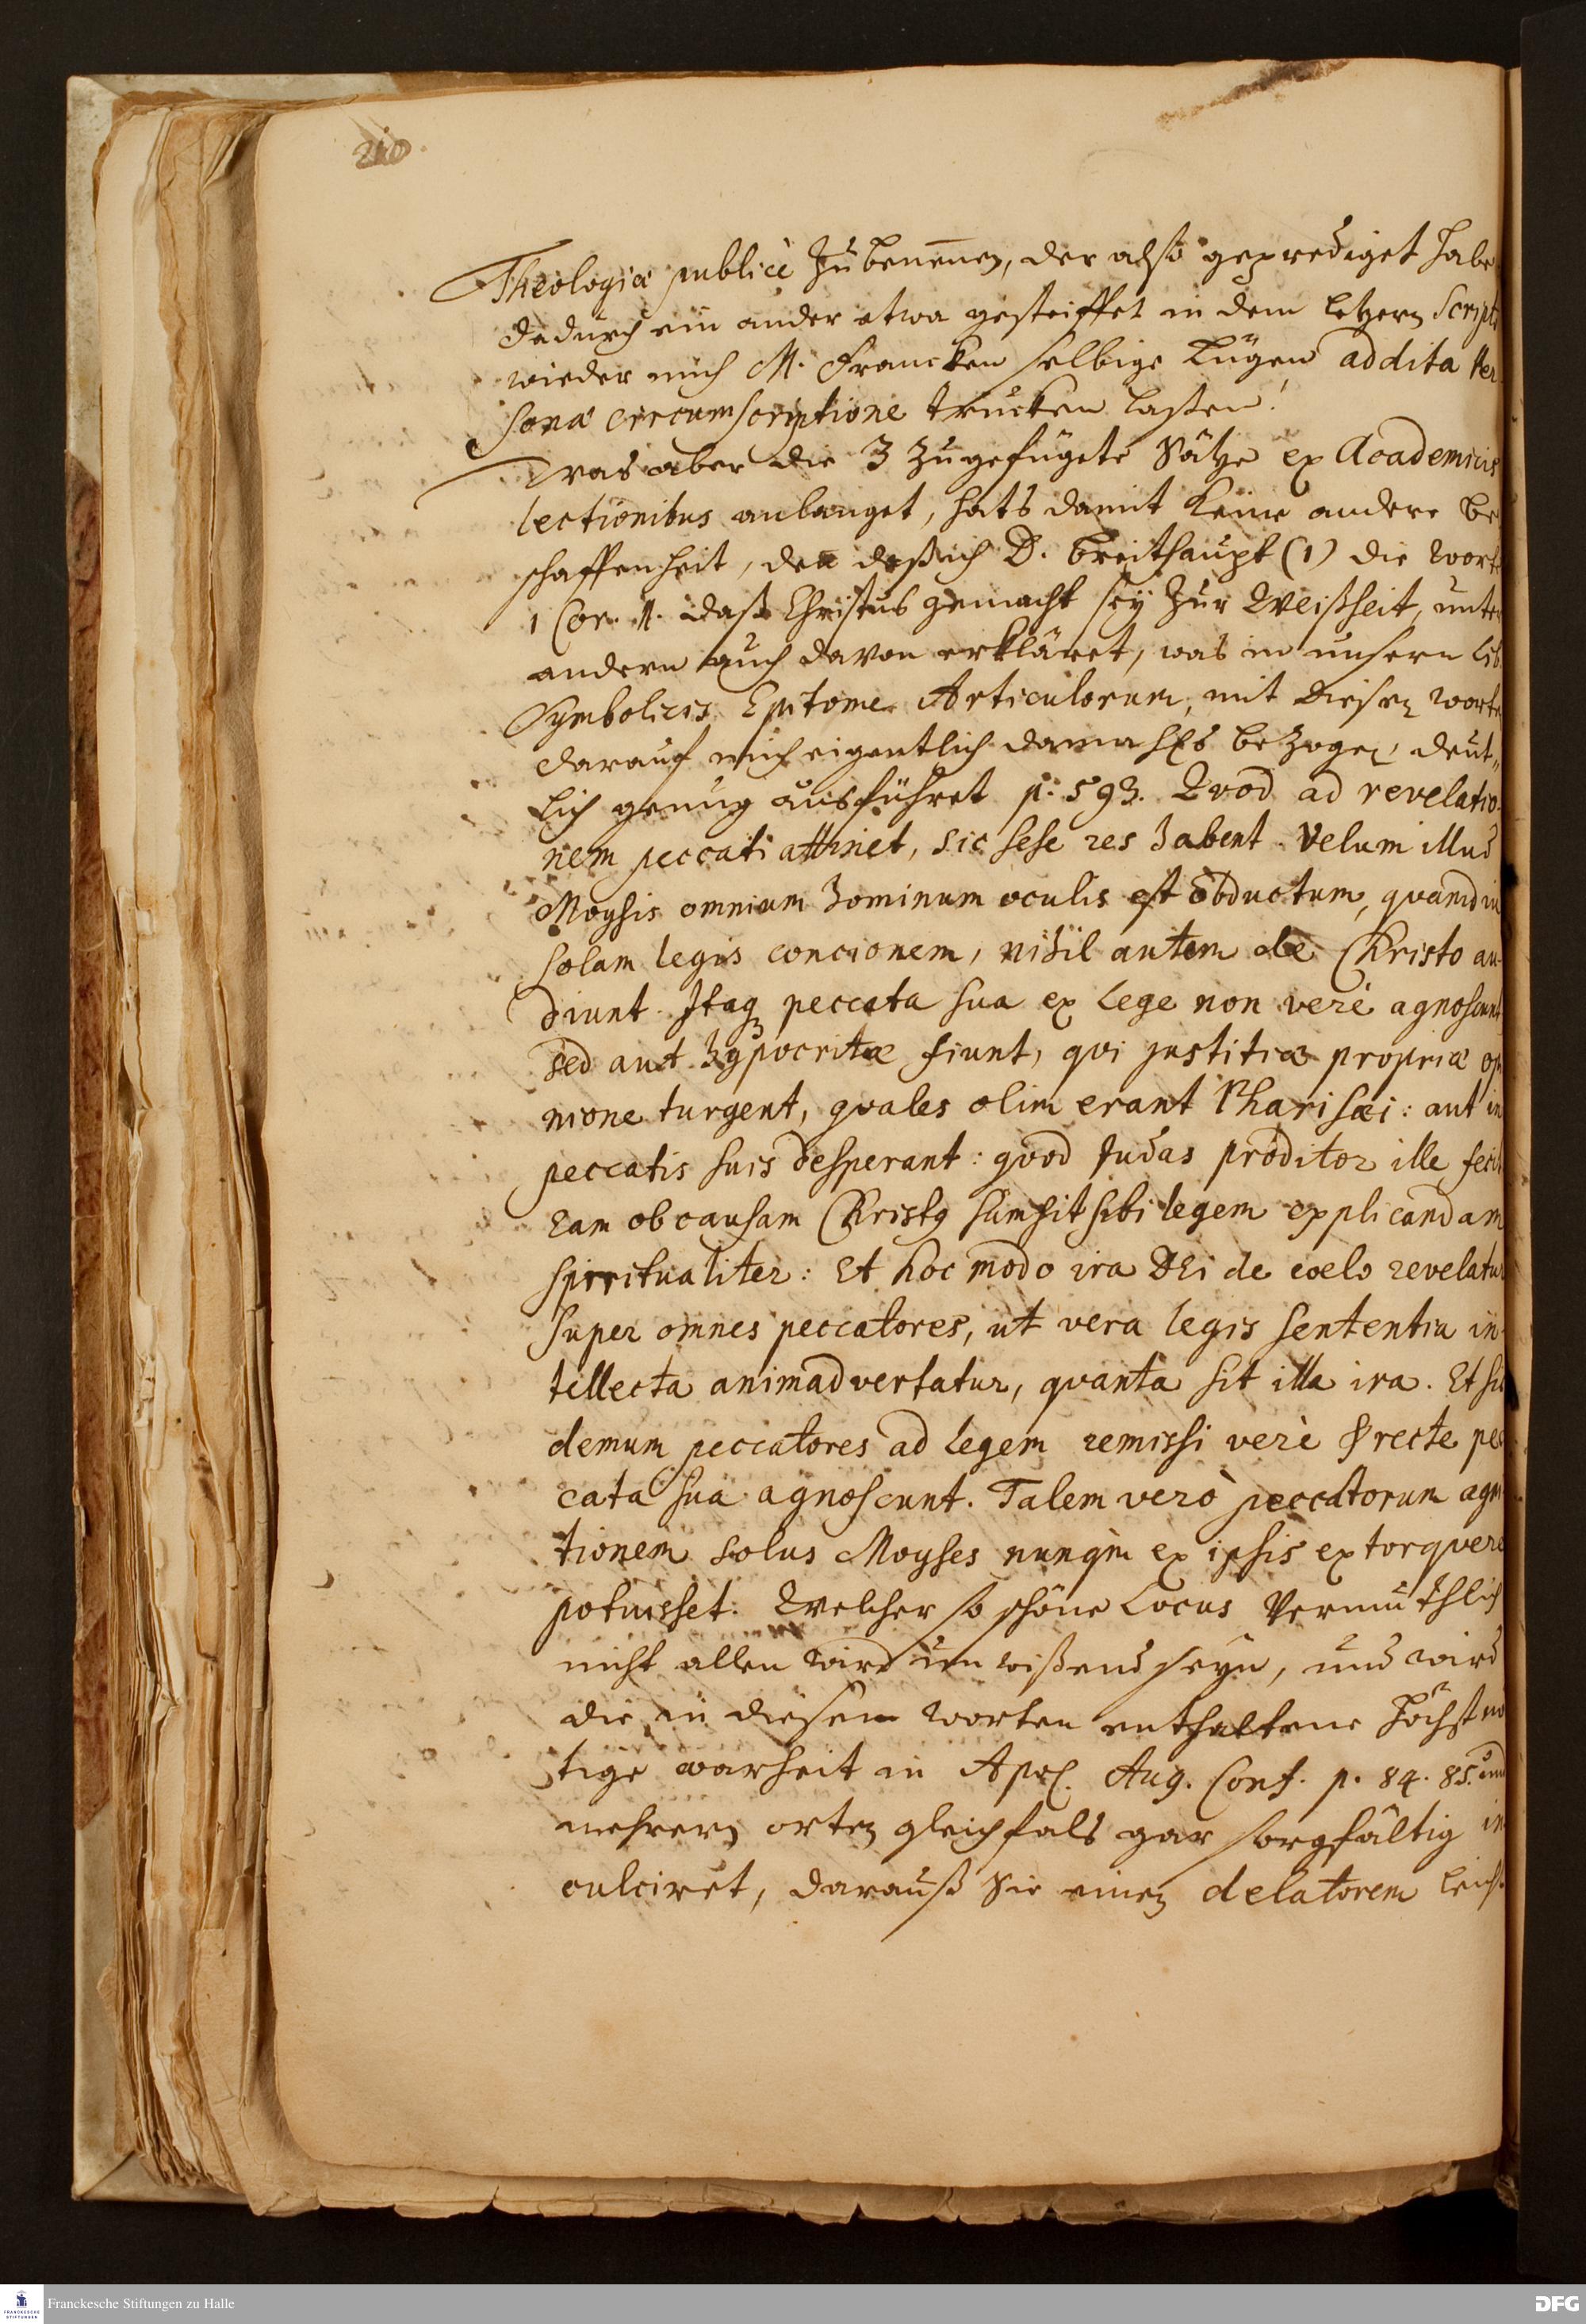 210.
Theologiæ publicè zubenen̄en, der also geprediget habe
dadurch ein ander etwa gesteiffet in dem letzern Scripto
wieder mich M. Francken selbige Lügen addita per
sonæ circumscriptione trucken laßen!
Was aber die 3 zugefügete Sätze ex Academicis
lectionibus anlanget, hats damit keine andere Be
schaffenheit, den daß ich D. Breithaupt (1) die Wort
1 Cor. 1. daß Christus gemacht sey zur Weißheit, unter
andern auch davon erkläret, was in unsern Lib.
Symbolicis Epitome Articulorum, mit diesen worten
darauf mich eigentlich damahls bezogen, deut„
lich genug ausführet p. 593. Qvod ad revelatio-
nem peccati attinet, sic sese res habent. Velum illud
Moysis omnium hominum oculis est obductum, qvamdiu
solam legis concionem, nihil autem de Christo au-
diunt. Itaq₃ peccata sua ex Lege non verè agnoscunt
sed aut hypocritæ fiunt, qvi justitiæ propriæ opi
nione turgent, qvales olim erant Pharisæi: aut in
peccatis suis desperant: qvod Judas proditor ille fecit
Eam ob causam Christ9 sumsit sibi legem explicandam
spiritualiter: Et hoc modo ira DEi de coelo revelatur
super omnes peccatores, ut vera legis sententia in-
tellecta animadvertatur, qvanta sit illa ira. Et sic
demum peccatores ad legem remissi verè & recte pec
cata sua agnoscunt. Talem verò peccatorum agni
tionem solus Moyses nunqm̀ ex ipsis extorqvere
potuisset. Welcher so schöne Locus Vermuthlich
nicht allen wird unwißend seyn, und wird
die in diesem worten enthaltene höchst nö
tige warheit in Apol. Aug. Conf. p. 84. 85. und
mehrern orten gleichfals gar sorgfältig in
culciret, darauß Sie einen delatorem leicht
Franckesche Stiftungen zu Halle
DFG